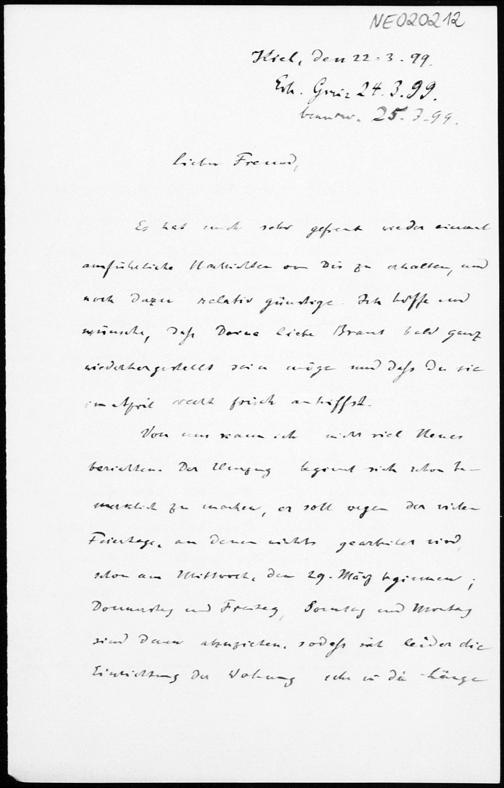 NE020212
Kiel, den 22.3.99.
Erh. Greiz 24.3.99.
beantw. 25.3.99.
Lieber Freund,
Es hat mich sehr gefreut wieder einmal
ausführliche Nachrichten von Dir zu erhalten, und
noch dazu relativ günstige. Ich hoffe und
wünsche, daß Deine liebe Braut bald ganz
wiederhergestellt sein möge und daß Du sie
im April recht frisch antriffst.
Von uns kann ich nicht viel Neues
berichten. Der Umzug beginnt sich schon be-
merklich zu machen, er soll wegen der vielen
Feiertage, an denen nichts gearbeitet wird,
schon am Mittwoch, den 29. März beginnen;
Donnerstag und Freitag, Sonntag und Montag
sind dann abzuziehen, sodaß sich leider die
Einrichtung der Wohnung sehr in die Länge